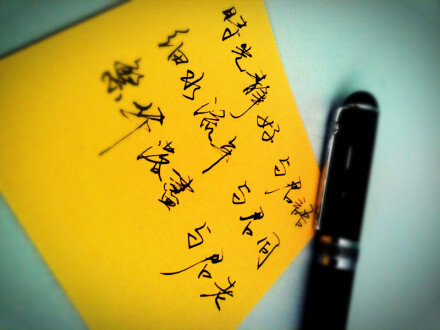 时光静好 与君語
细水流年 与君同
繁华落尽 与君老